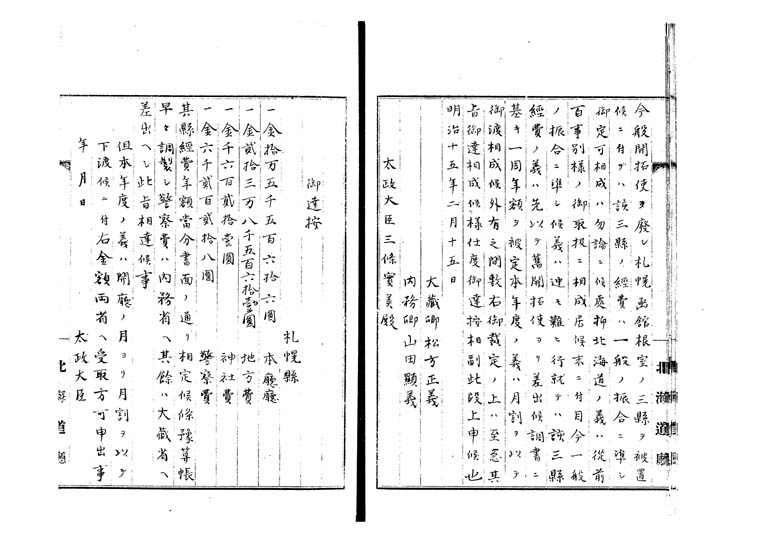 今般開拓使ヲ廃シ札幌函館根室ノ三縣ヲ被置
候ニ付テハ該三縣ノ経費ハ一般ノ振合ニ準シ
御定可相成ハ勿論ニ候處抑北海道ノ義ハ従前
百事別様ノ御取扱ニ相成居候末ニ付目今一般
ノ振合ニ準シ候義ハ迚モ難ト行就テハ該三縣
経費ノ義ハ先以テ舊開拓使ヨリ差出候調書ニ
基キ一周年額ヲ被定本年度ノ義ハ月割ヲ以テ
御渡相成候外有之間敷右御裁定ノ上ハ至急其
旨御達相成候様仕度御達按相副此段上申候也
明治十五年二月十五日
大藏卿松方正義
内務卿山田顯義
太政大臣三條實美殿
北海道廳
御達按
札幌縣
一金拾万五千五百六拾六圓 本廳費
一金貳拾三万八千五百六拾壹圓 地方費
一金千六百貳拾壹圓 神社費
一金六千貳百貳拾八圓 警察費
其縣経費年額當分書面ノ通リ相定候條豫算帳
早々調製シ警察費ハ内務省ヘ其餘ハ大藏省ヘ
差出ヘシ此旨相達候事
但本年度ノ義ハ開廳ノ月ヨリ月割ヲ以テ
下渡候ニ付右金額両省ヘ受取方可申出事
年月日
太政大臣
北海道廳